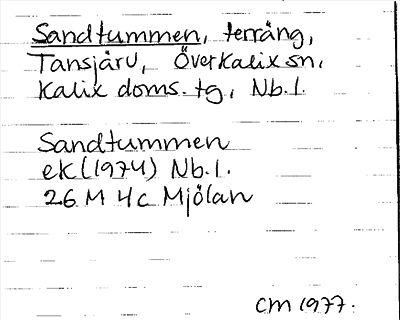 Sandtummen, terräng,
Tansjärv, Överkalix sn,
Kalix doms. tg, Nb.l.
Sandtummen
ek (1974) Nb.l.
26 M 4c Mjölan
CM 1977.